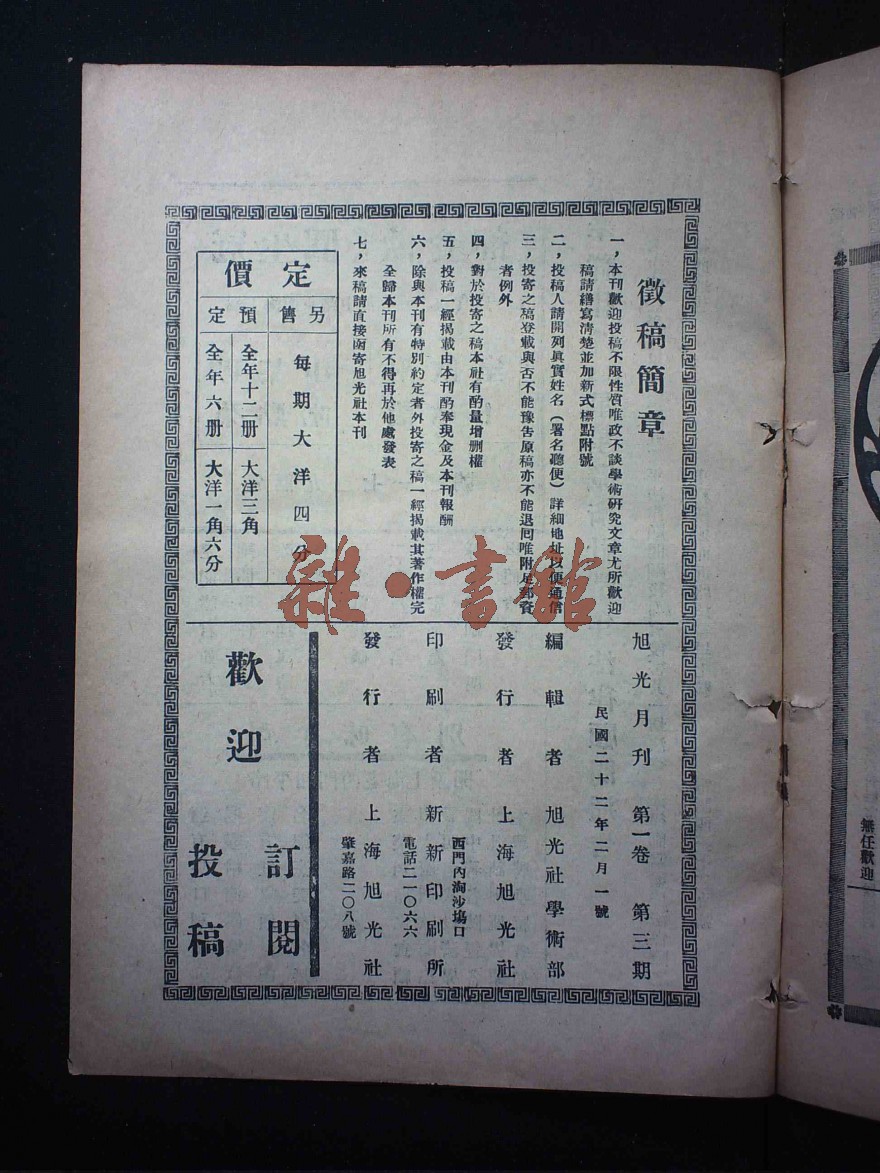 徵稿簡章
一，本刊歡迎投稿不限性質唯政不談學術研究文章尤所歡迎
稿請繕寫清楚並加新式標點附號
二，投稿人請開列眞實姓名（署名聽便）詳細地址以便通信
三，投寄之稿登載與否不能豫告原稿亦不能退囘唯附足郵資
者例外
四，對於投寄之稿本社有酌量增删權
五，投稿一經揭載由本刊酌奉現金及本刊報酬
六，除與本刊有特別約定者外投寄之稿一經揭載其著作權完
全歸本刊所有不得再於他處發表
七，來稿請直接函寄旭光社本刊
定價
另售
每期大洋四分
預定
全年十二册 大洋三角
全年六册 大洋一角六分
旭光月刊 第一卷 第三期
民國二十二年二月一號
編輯者 旭光社學術部
發行者 上海旭光社
西門內淘沙塲口
印刷者 新新印刷所
電話二一〇六六
發行者 上海旭光社
肇嘉路二〇八號
歡迎
訂閱
投稿
雜·書館
無任歡迎